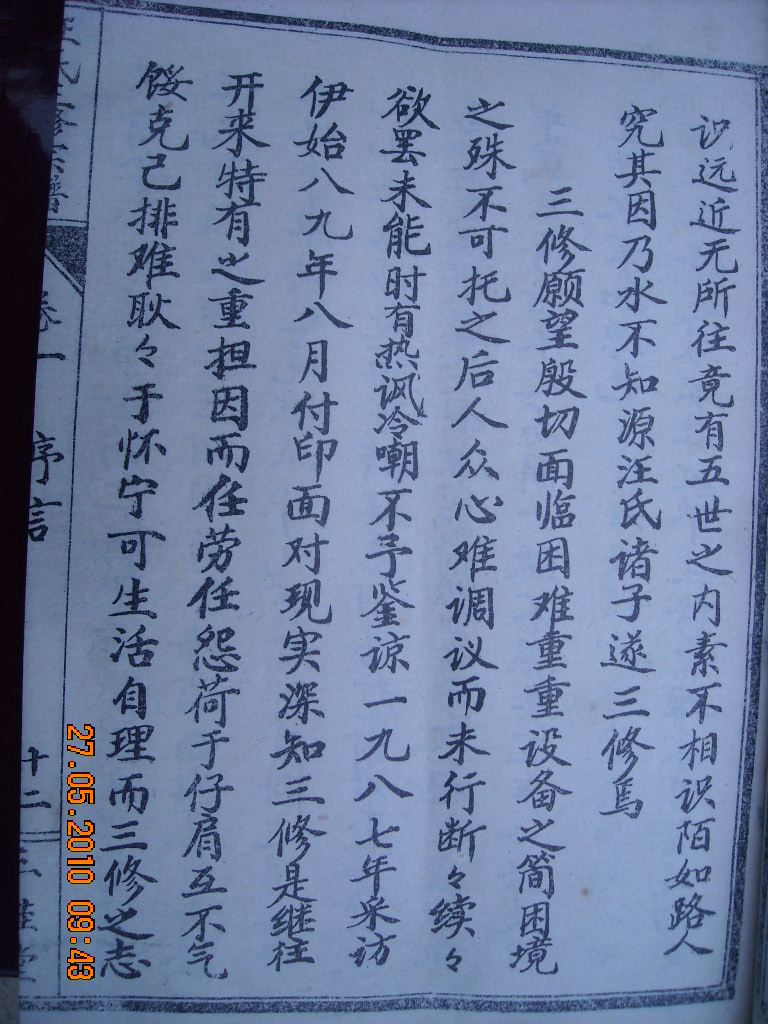 识远近无所往竟有五世之内素不相识陌如路人
究其因乃水不知源汪氏诸子遂三修焉
三修愿望殷切面临困难重重设备之简困境
之殊不可托之后人众心难调议而未行断々续々
欲罢未能时有热讽冷嘲不予鉴谅一九八七年采访
伊始八九年八月付印面对现实深知三修是继往
开来特有之重担因而任劳任怨荷于仔肩互不气
馁克己排难耿々于怀宁可生活自理而三修之志
氏 修宗谱
卷一 序言
十二
27.05.2010 09:43